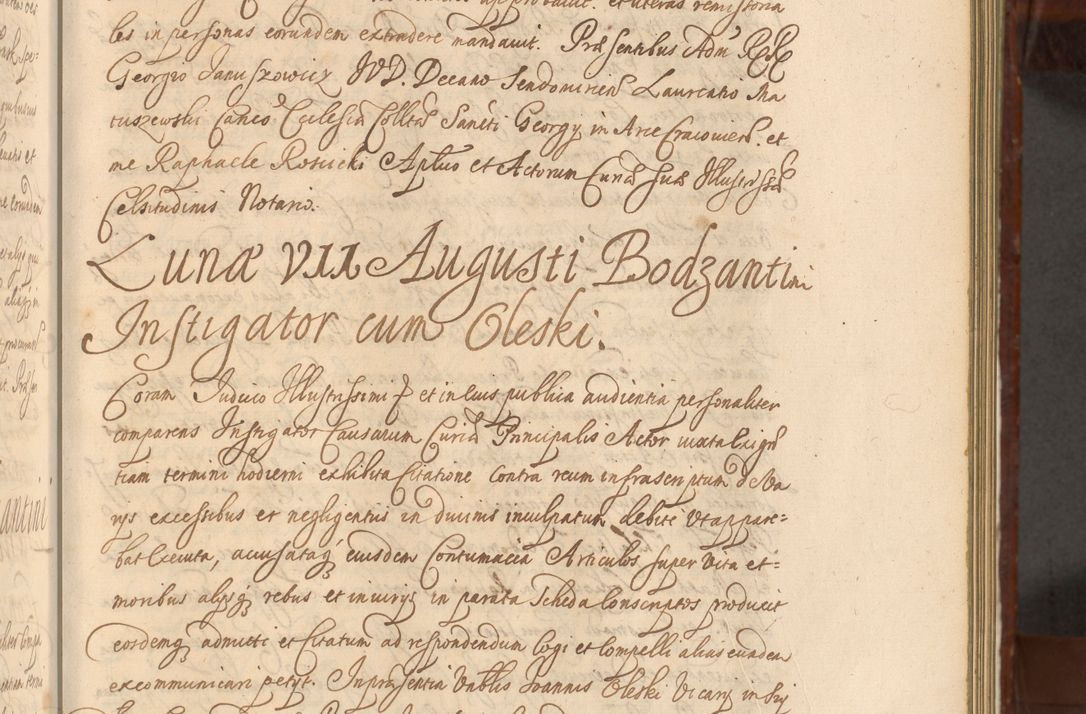 les in personas eorundem extradere mandavit. Præsentibus Adm RR
Georgio Januszowicz JVD. Decano Sendomirien Laurentio Ma
tuszewski Canco Ecclesiæ Colltæ Sancti Georgy in Arce Cracovien. et
me Raphaele Rosticki Aplico et Actorum Curiæ Suæ Illustrissæ
Celsitudinis Notario.
Lunæ VII Augusti Bodzantini
Instigator cum Oleski.
Coram Judicio Illustrissimi et in eius publica audientia personaliter
comparens Instigator Causarum Curiæ Principalis Actor iuxta Exigen
tiam termini hodierni exhibita Citatione Contra reum infrascriptum de Va
rys excessibus et negligentys in divinis inculpatum debite Ut appare=
bat Executa, accusataq eiusdem Contumacia Articulos super Vita et=
moribus alysq rebus et iniurys in parata Scheda Conscriptos producit
eosdemq admitti et Citatum ad respondendum Cogi et Compelli alias eundem
excommunicari petyt. In præsentia Vnblis Joannis Oleski Vicary in Sy